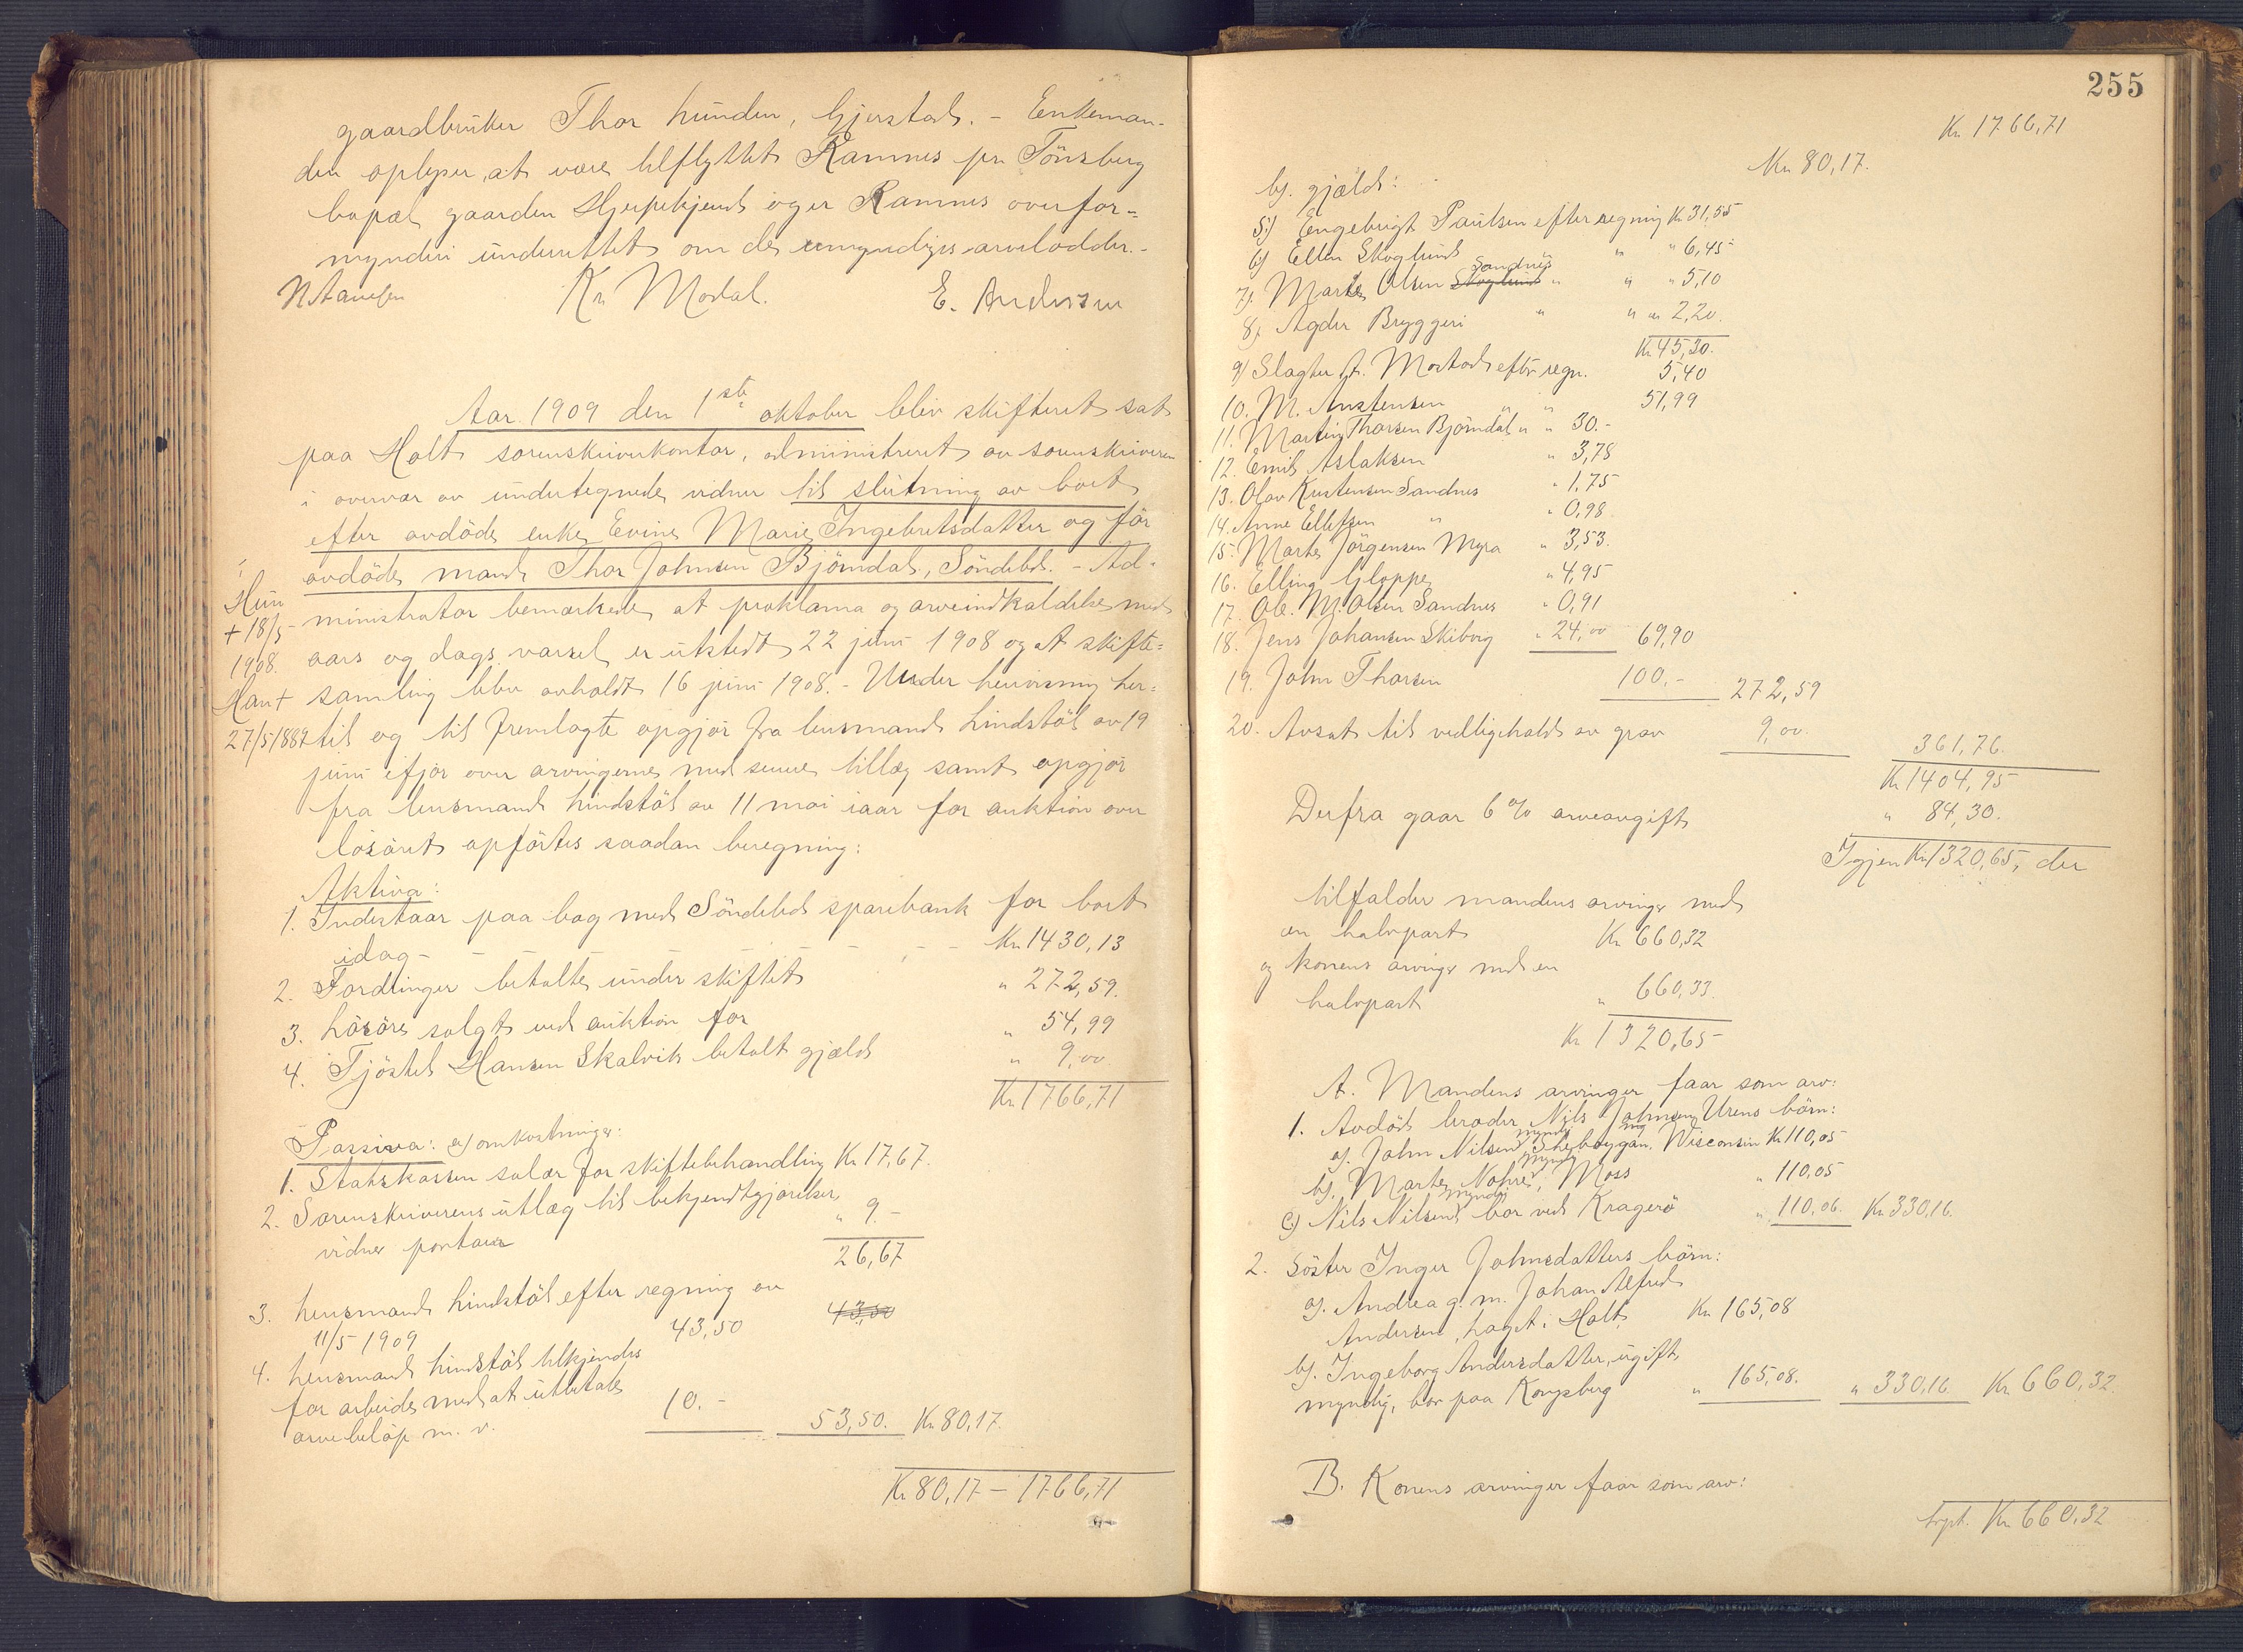 gaardbruker Thor Lunden, Gjerstad. - Enkeman-
den oplyser, at være tilflyttet Ramnes pr Tönsberg
bopæl gaarden Hjerpekjend og er Ramnes overfor-
mynderi underrettet om de umyndiges arvelodder. -
N. Stavelsen Kr Modal. E. Andersen
Aar 1909 den 1ste oktober blev skifteret sat
paa Holt sorenskriverkontor, administreret av sorenskriveren
i overvær av undertegnede vidner til slutning av boet
efter avdöde enke Evine Marie Ingebretsdatter og för
avdöde mand Thor Johnsen Björndal, Söndeled. - Ad-
Hun
+ 18/5
1908.
Han +
27/5 1889
ministrator bemærkede, at proklama og arveindkaldelse med
aars og dags varsel er utstedt 22 juni 1908 og at skifte-
samling blev avholdt 16 juni 1908. - Under henvisning her-
til og til fremlagte opgjör fra lensmand Lindstöl av 19
juni ifjor over arvingerne med senere tillæg samt opgjör
fra lensmand Lindstöl av 11 mai iaar for auktion over
lösöret opförtes saadan beregning:
Aktiva:
1. Indestaar paa bog med Söndeled sparebank for boet
idag - - - - - - - - Kr 1430,13
2. Fordringer betalte under skiftet " 272,59.
3. Lösöre solgt ved auktion for " 54,99
4. Tjöstel Hansen Skalvik betalt gjæld " 9,00
Kr 1766,71
Passiva: a) omkostninger:
1. Statskassen salær for skiftebehandling Kr 17,67.
2. Sorenskriverens utlæg til bekjendtgjörelser,
vidner portoer " 9.-
26,67
3. Lensmand Lindstöl efter regning av
11/5 1909 43,50 43,50
4. Lensmand Lindstöl tilkjendes
for arbeide med at utbetale
arvebelöp m. v. 10.- 53,50. Kr 80,17
Kr 80,17 - 1766,71
255
Kr 1766,71
Kr 80,17.
b). gjæld:
5) Engebrigt Paulsen efter regning Kr 31,55
6) Ellen Skoglund " " 6,45
7). Marte Olsen Skoglund Sandnes " " " 5,10
8). Agder Bryggeri " " " 2,20.
Kr 45,30.
9) Slagter A. Mostad efter regn. 5,40
10. M. Anstensen " " 51,99
11. Martin Thorsen Björndal " " 30.-
12. Emil Aslaksen " 3,78
13. Olav Kristensen Sandnes " 1,75
14. Anne Ellefsen " " 0,98.
15. Marte Jörgensen Myra " 3,53.
16. Elling Gloppe " 4,95
17. Ole M. Olsen Sandnes " 0,91
18. Jens Johansen Skibvig " 24,00 69,90
19. John Thorsen 100.- 272,59
20. Avsat til vedligehold av grav 9,00. 361,76.
Kr 1404,95
Derfra gaar 6 % arveavgift " 84,30.
Igjen Kr 1320,65, der
tilfalder mandens arvinger med
en halvpart Kr 660,32
og konens arvinger med en
halvpart " 660,33.
Kr 1320,65
A. Mandens arvinger faar som arv:
1. Avdöd broder Nils Johnsen Urens börn:
a). John Nilsen, myndig Sheboygan, Wisconsin Kr 110,05
b). Marte Nohre, myndig Moss " 110,05
c) Nils Nilsen, myndig bor ved Kragerö " 110,06. Kr 330,16.
2. Söster Inger Johnsdatters börn:
a). Andrea g. m. Johan Alfred
Andersen, Laget i Holt Kr 165,08
b). Ingeborg Andersdatter, ugift,
myndig, bor paa Kongsberg " 165,08. " 330,16. Kr 660,32.
B. Konens arvinger faar som arv:
trpt. Kr 660,32